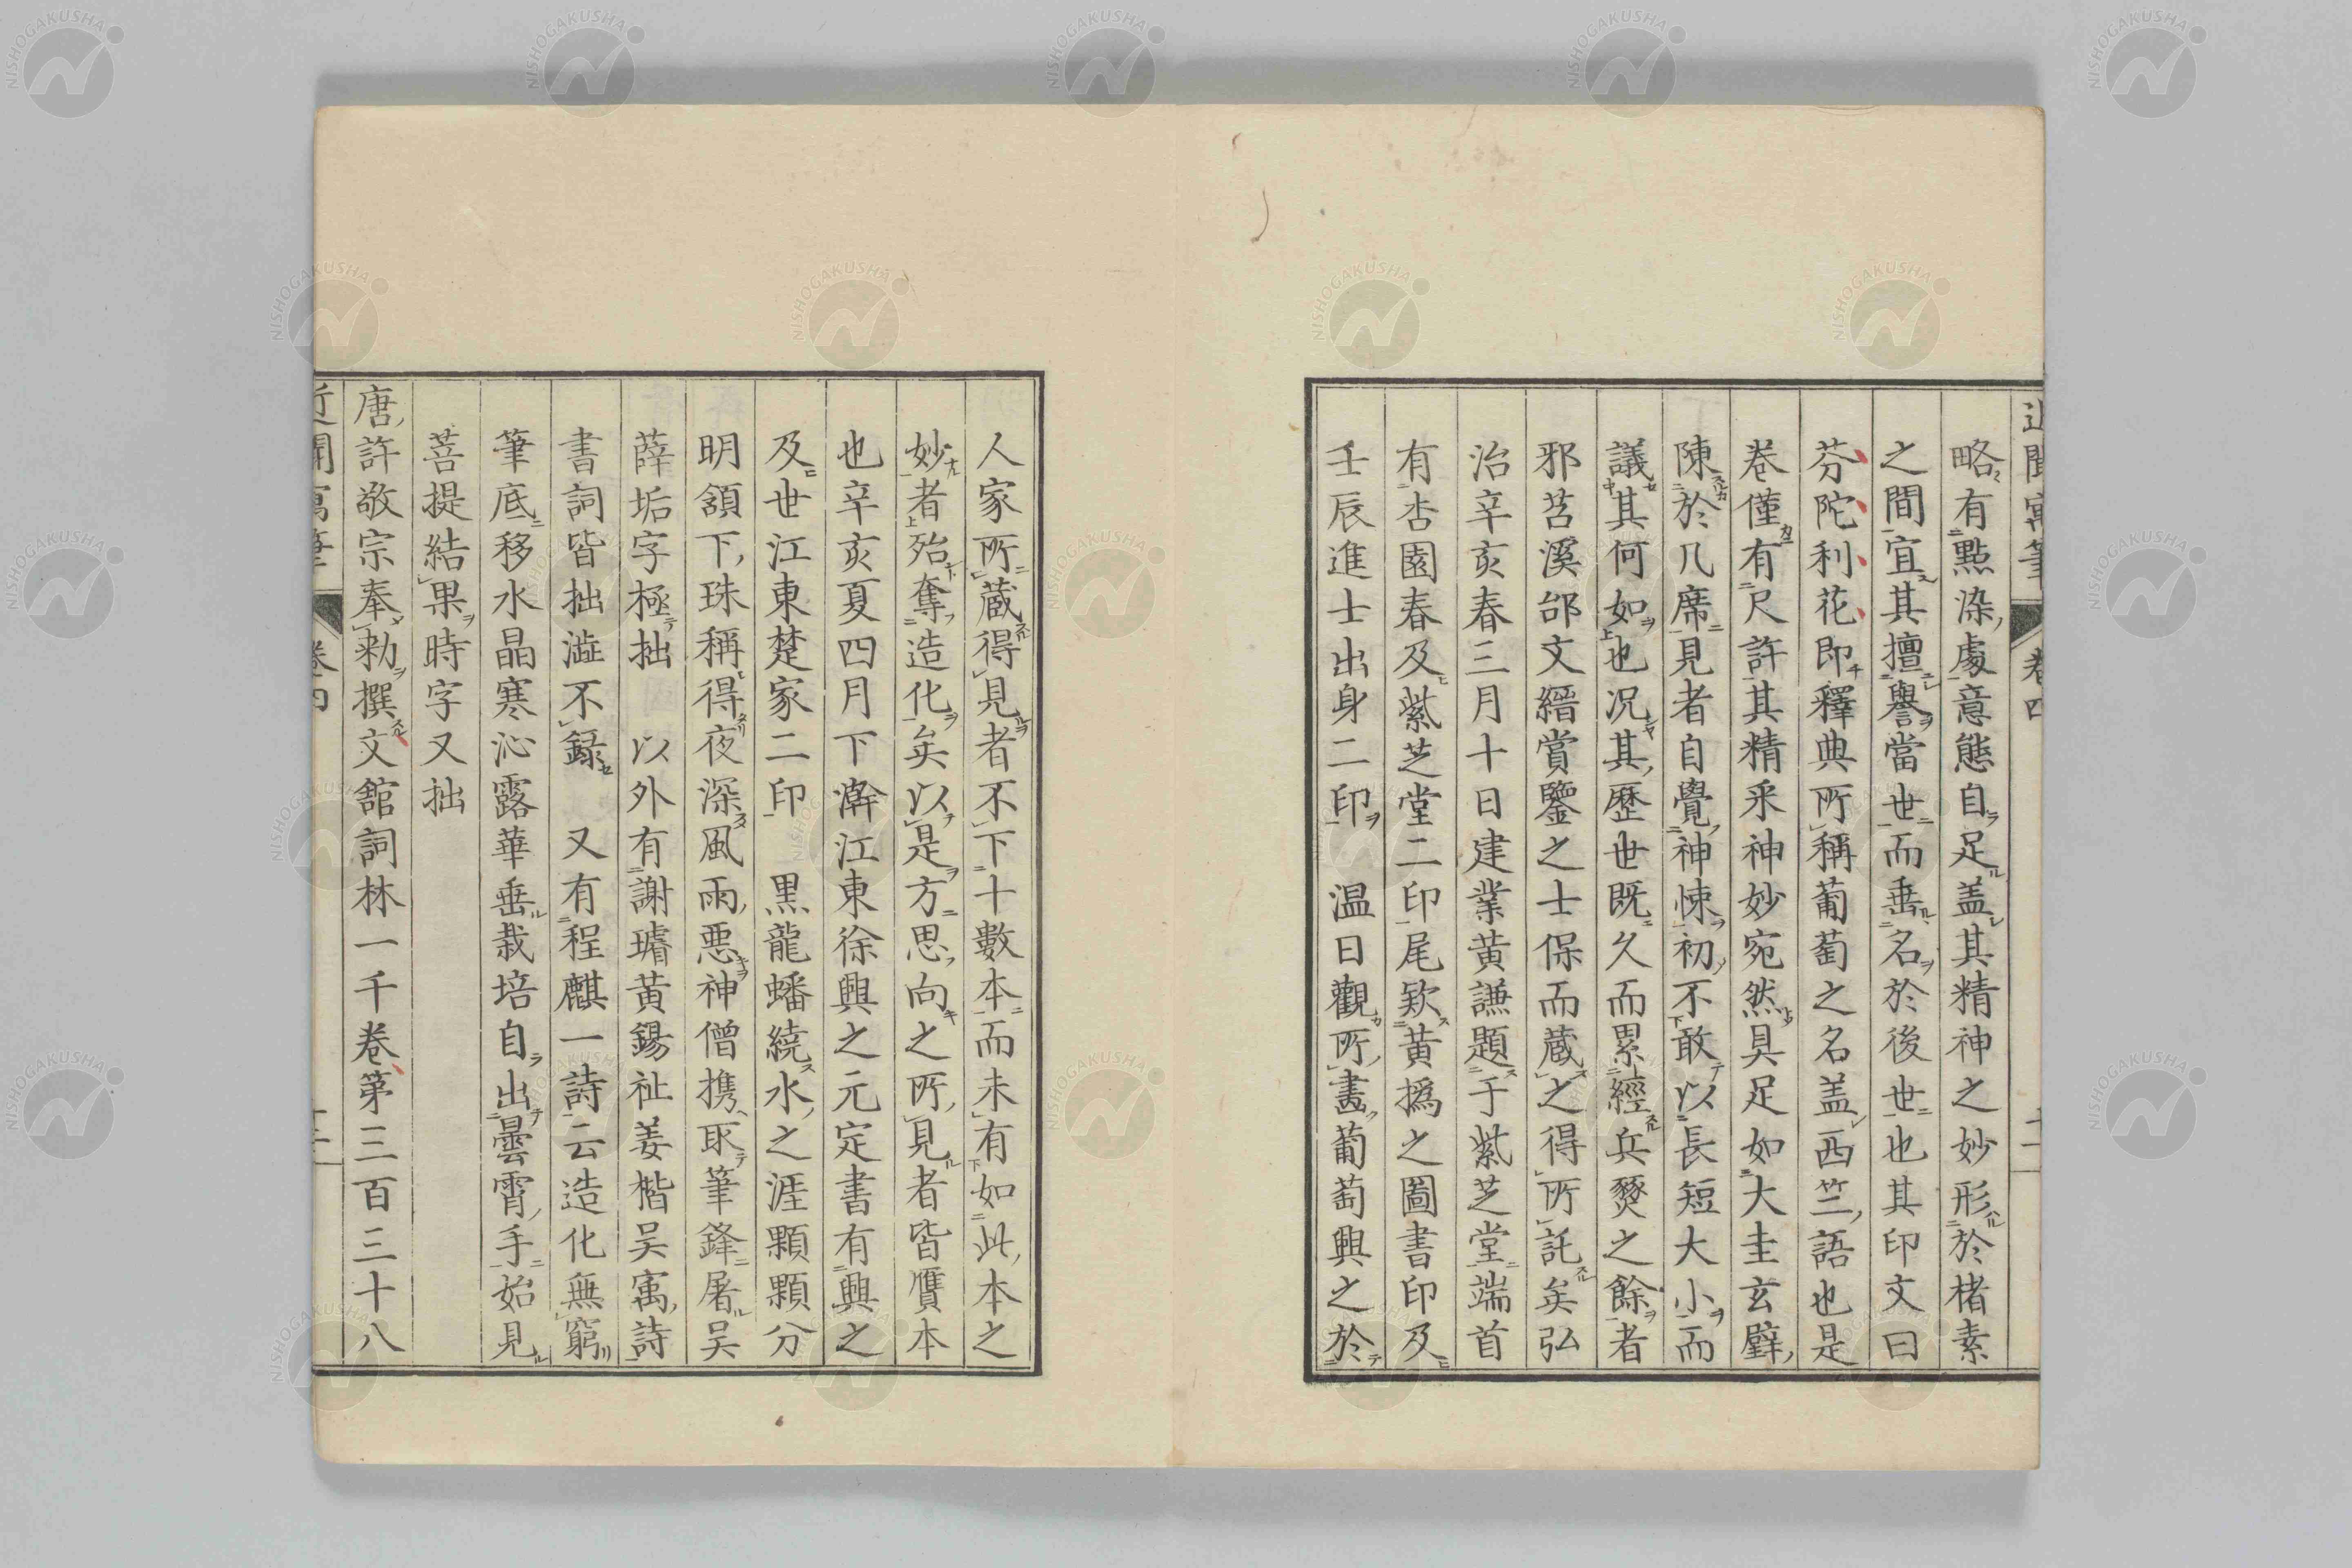 近聞寓筆 卷四 十二
略有點染處意態自足盖其精神之妙形於楮素
之間宜其擅譽當世而垂名於後世也其印文曰
芬陀利花即釋典所稱葡萄之名盖西竺語也是
巻僅有尺許其精采神妙宛然具足如大圭玄璧
陳於几席見者自覺神悚初不敢以長短大小而
議其何如也况其歷世既久而累經兵燹之餘者
邪苕溪邰文縉賞鑒之士保而蔵之得所託矣弘
治辛亥春三月十日建業黄謙題于紫芝堂端首
有杏園春及紫芝堂二印尾欵黄撝之圖書印及
壬辰進士出身二印 温日觀所畫葡萄興之於
人家所蔵得見者不下十數本而未有如此本之
妙者殆奪造化矣以是方思向之所見者皆贋本
也辛亥夏四月下澣江東徐興之元定書有興之
及世江東楚家二印 黒龍蟠繞水之涯顆顆分
明頷下珠稱得夜深風雨惡神僧携取筆鋒屠吴
薛垢字極拙 以外有謝璿黄錫祉姜楷吴寓詩
書詞皆拙澁不録 又有程麒一詩云造化無窮
筆底移水晶寒沁露華垂栽培自出曇霄手始見
菩提結果時字又拙
唐許敬宗奉勅撰文舘詞林一千巻第三百三十八
近聞寓筆 卷四 十三
NISHOGAKUSHA